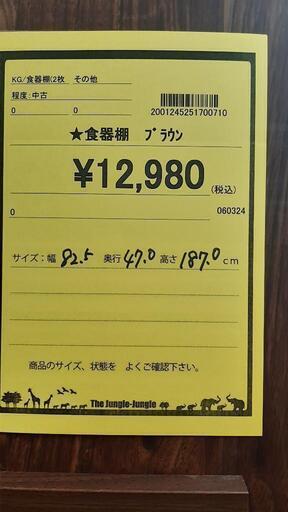 KG/食器棚(2枚　その他
程度:中古
0　0　2001245251700710
★食器棚　ﾌﾞﾗｳﾝ
¥12,980(税込)
0　060324
サイズ:幅 82.5 奥行 47.0 高さ 187.0 cm
商品のサイズ、状態を　よくご確認下さい。
The Jungle-Jungle